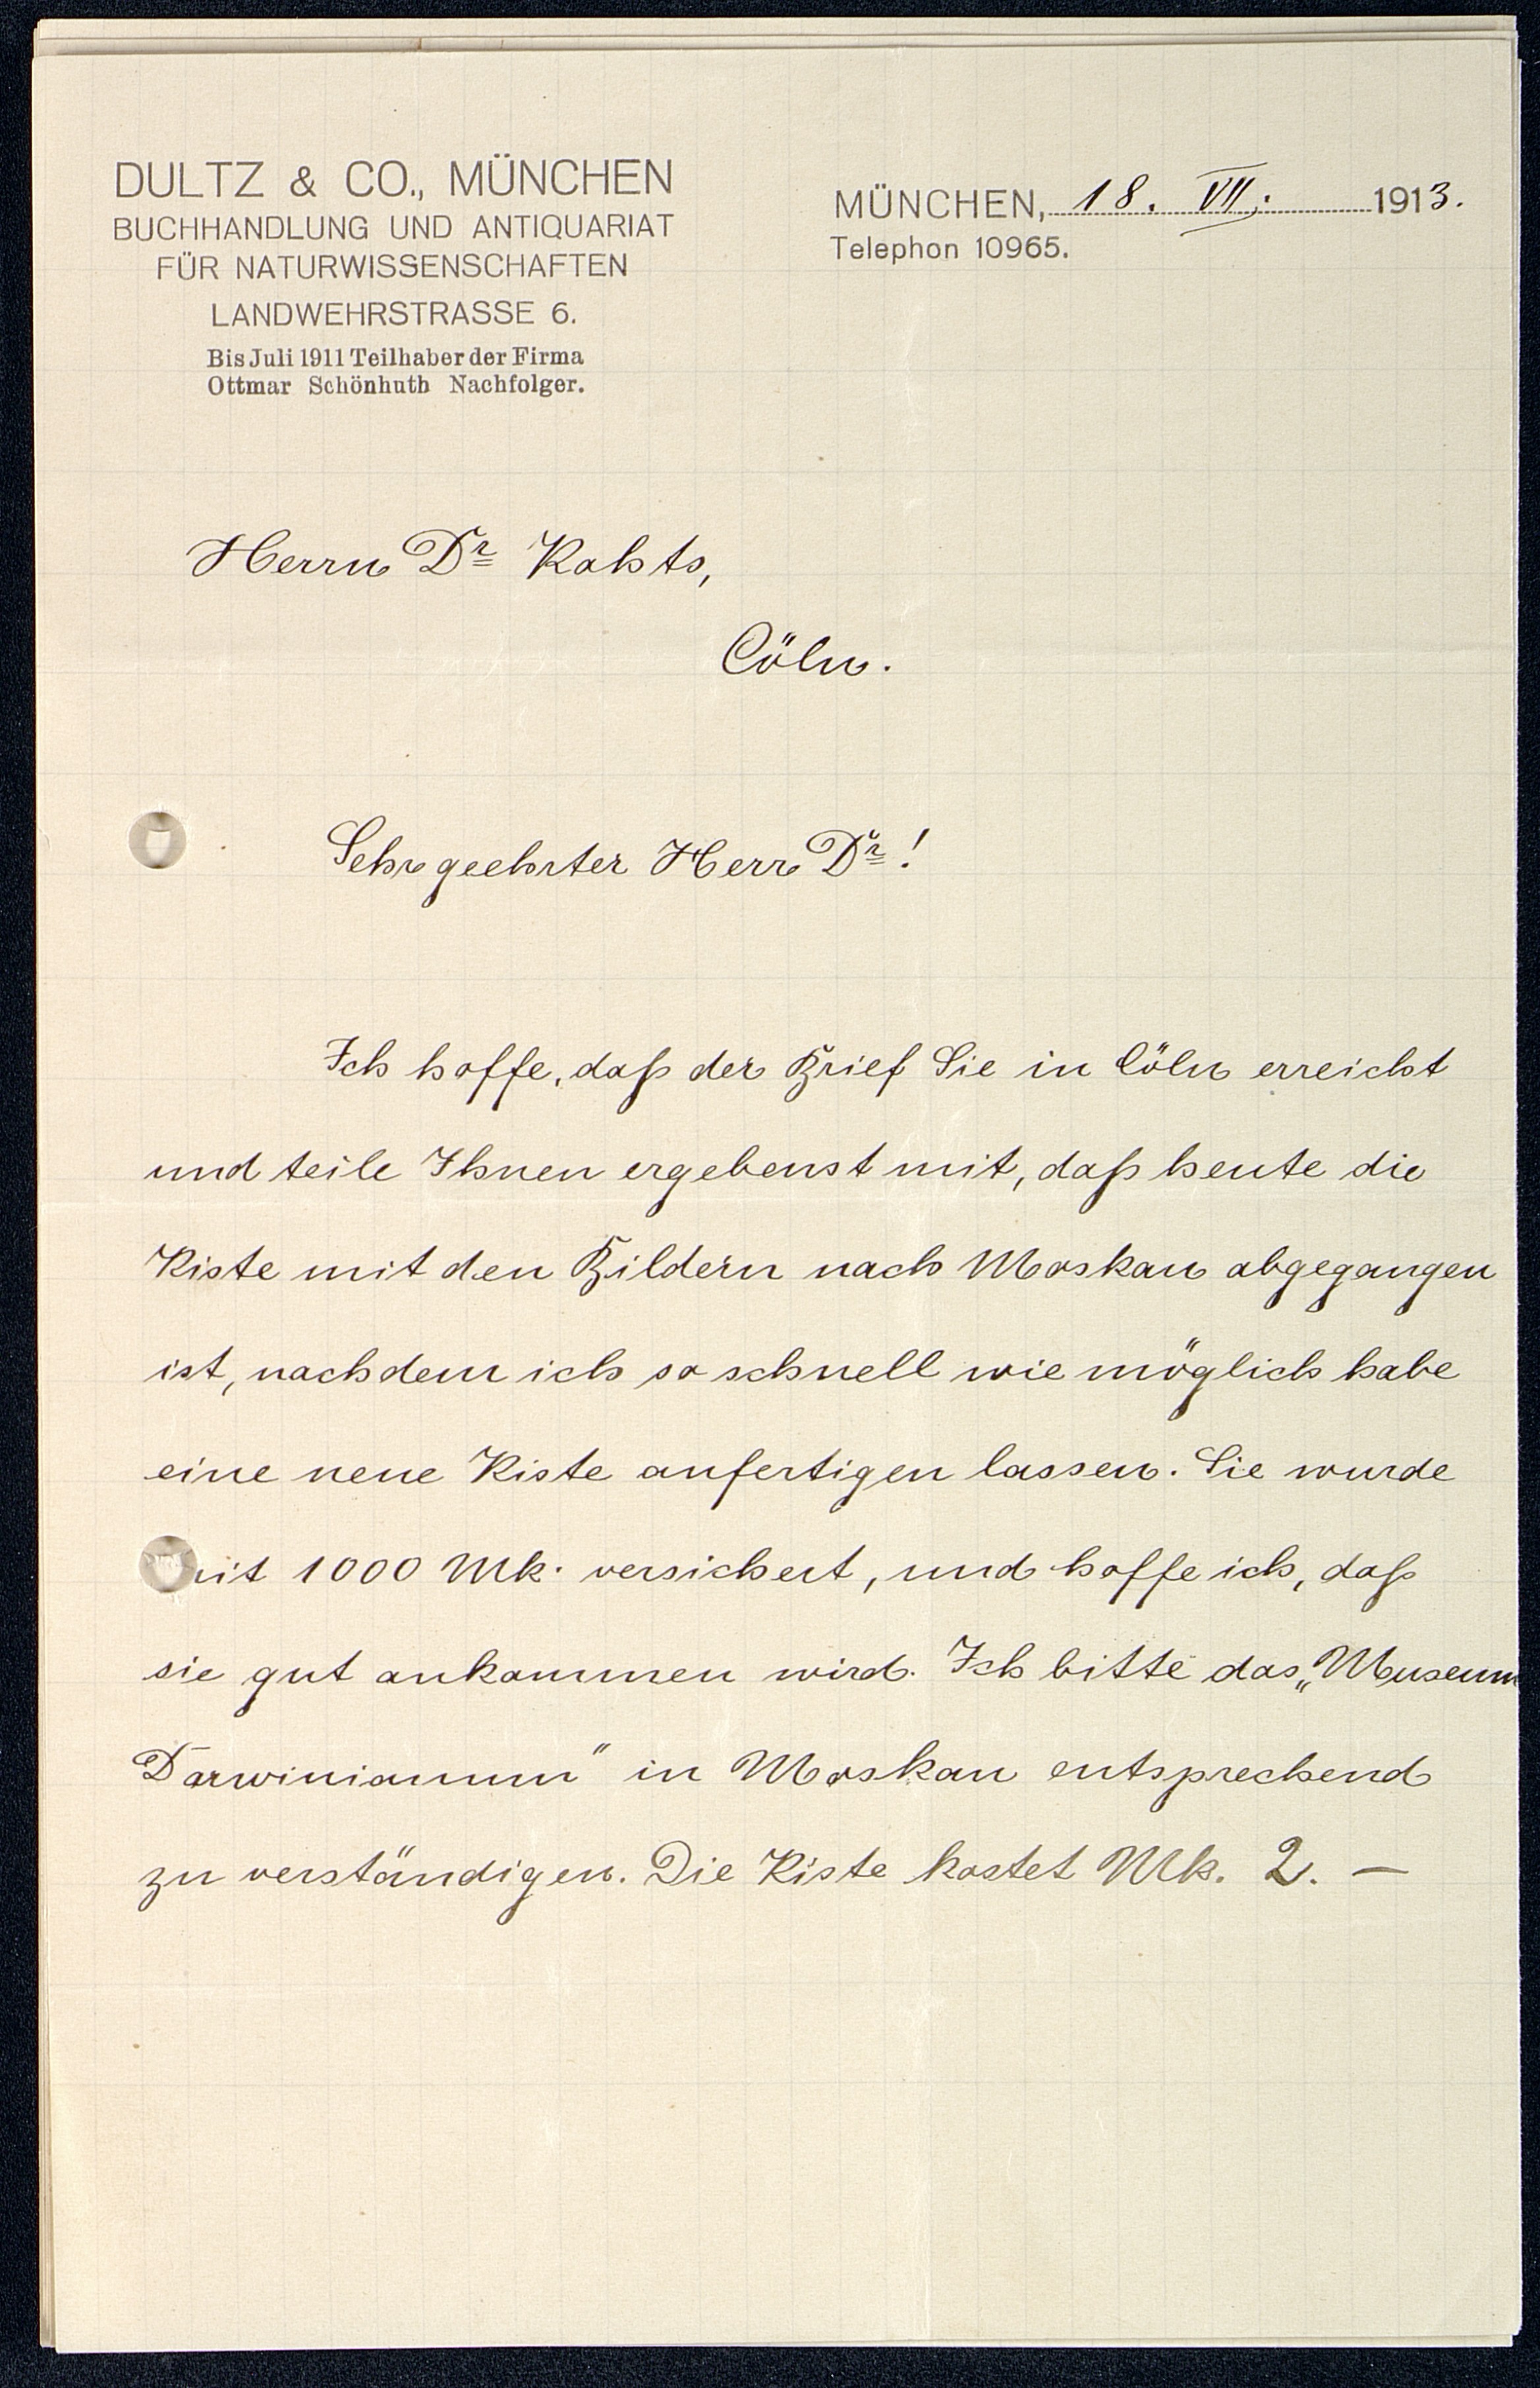 DULTZ & CO., MÜNCHEN
BUCHHANDLUNG UND ANTIQUARIAT
FÜR NATURWISSENSCHAFTEN
LANDWEHRSTRASSE 6.
Bis Juli 1911 Teilhaber der Firma
Ottmar Schönhuth Nachfolger.
MÜNCHEN, 18. VII. 1913.
Telephon 10965.
Herrn Dr Kohts,
Cöln.
Sehr geehrter Herr Dr!
Ich hoffe, daß der Brief Sie in Cöln erreicht
und teile Ihnen ergebenst mit, daß heute die
Kiste mit den Bildern nach Moskau abgegangen
ist, nachdem ich so schnell wie möglich habe
eine neue Kiste anfertigen lassen. Sie wurde
mit 1000 Mk. versichert, und hoffe ich, daß
sie gut ankommen wird. Ich bitte das „Museum
Darwinianum" in Moskau entsprechend
zu verständigen. Die Kiste kostet Mk. 2. —